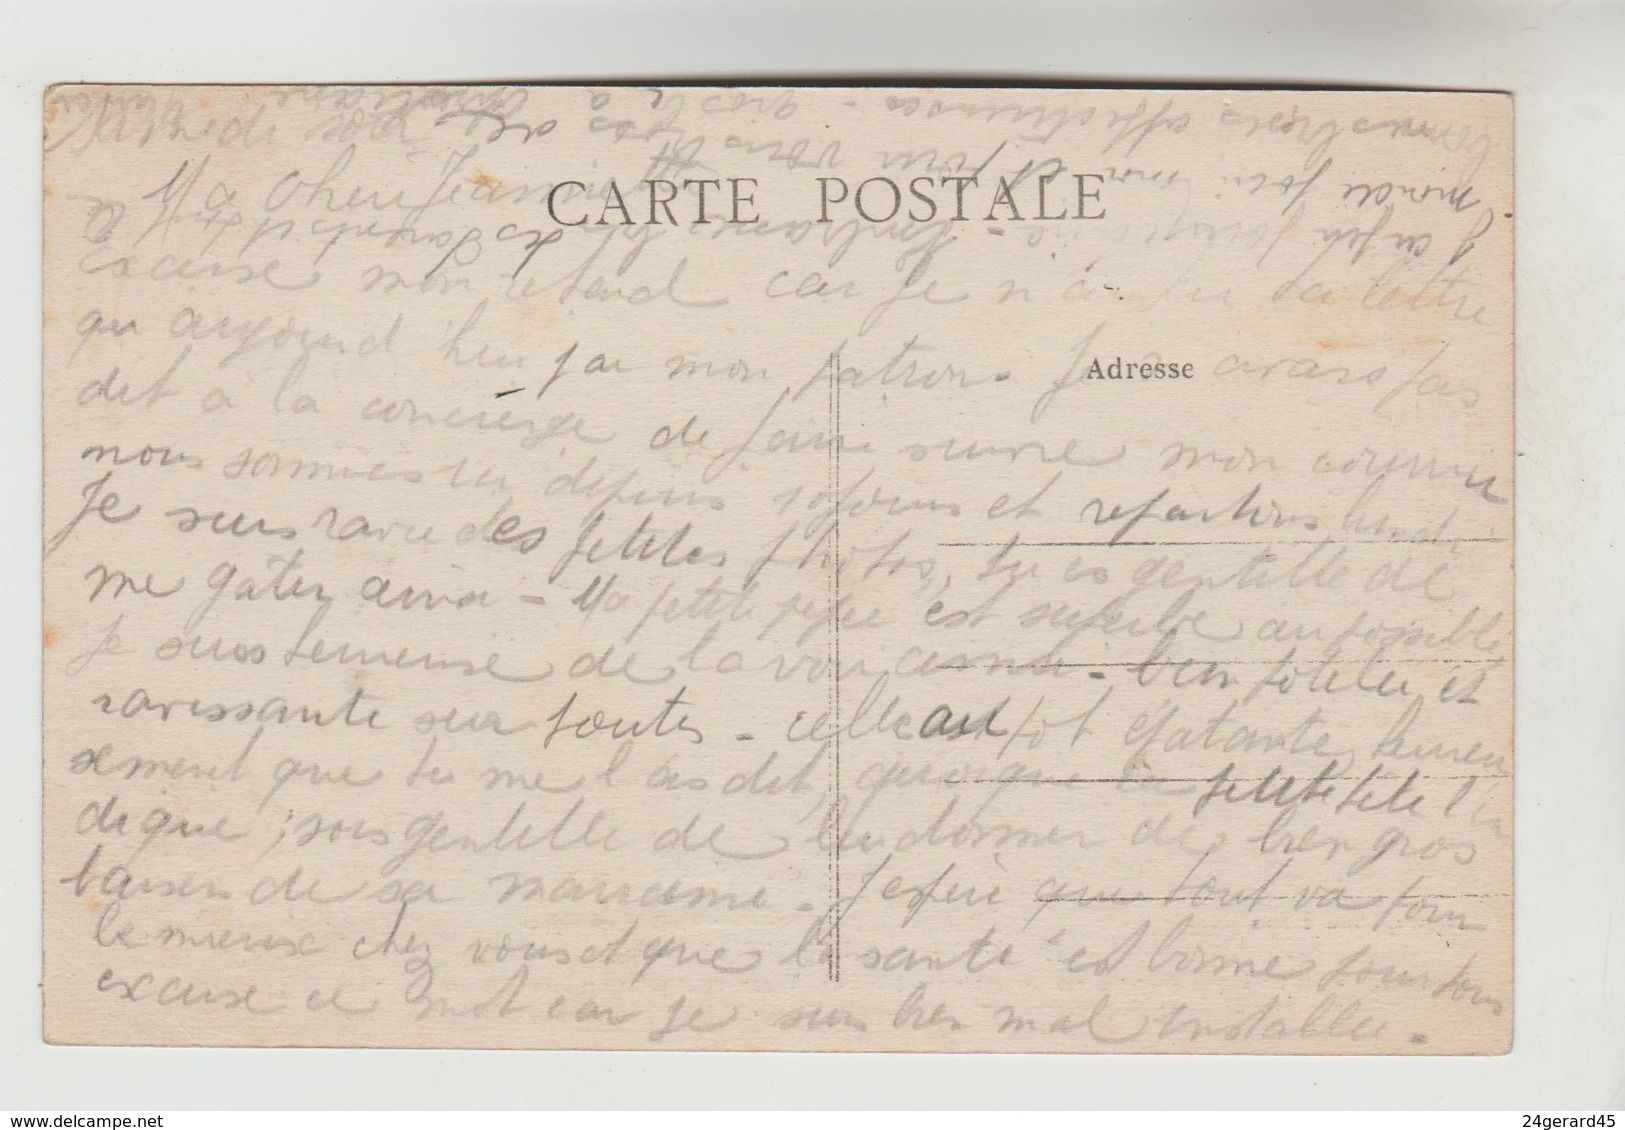 CARTE POSTALE
Ma chère Jeannine
Excuse mon retard car je n'ai eu ta lettre
qu'aujourd'hui par mon patron. Je avais pas
dit à la concierge de faire suivre mon courrier
nous sommes ici depuis jours et repartirons lundi
Adresse
Je suis ravie des petites photos, tu es gentille de
me gâter ainsi - Ma petite est superbe au possible
je suis heureuse de la voir ainsi - bien potelée et
ravissante sur toutes - celle au pot épatante heureu
sement que tu me l'as dit, quoique la petite tête l'in
dique ; sois gentille de lui donner de bien gros
baisers de sa marraine - J'espère que tout va pour
le mieux chez vous et que la santé est bonne pour tous
excuse ce mot car je suis bien mal installée -
bonnes bises affectueuses - grosse à
monde pour moi et pour vous tous
J'embrasse les parents et tout le
www.delcampe.net
24gerard45